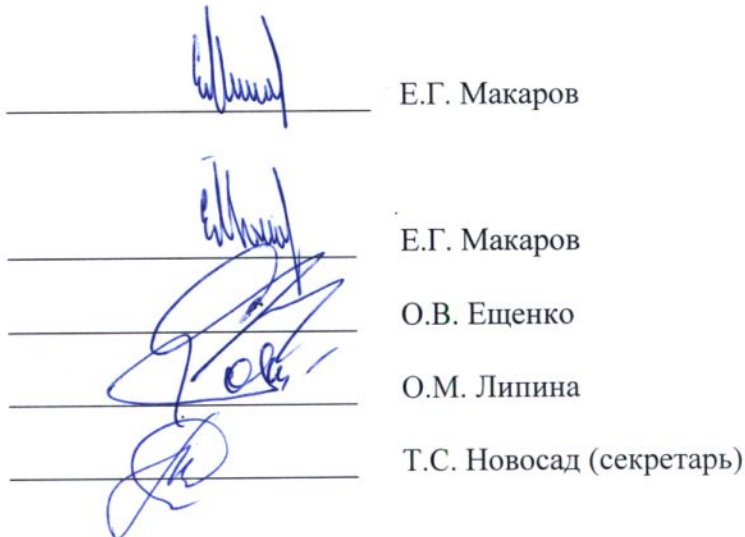 Е.Г. Макаров
Е.Г. Макаров
О.В. Ещенко
О.М. Липина
Т.С. Новосад (секретарь)